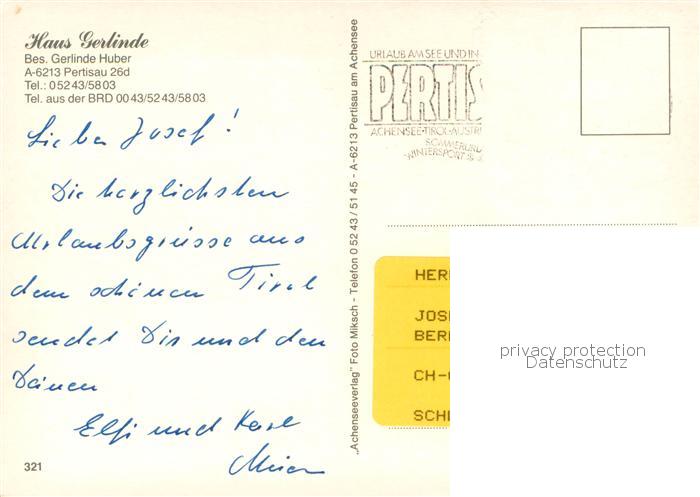 Haus Gerlinde
Bes. Gerlinde Huber
A-6213 Pertisau 26d
Tel.: 0 52 43/58 03
Tel. aus der BRD 00 43/52 43/58 03
Lieber Josef!
Die herzlichsten
Urlaubsgrüsse aus
dem schönen Tirol
sendet Dir und den
Deinen
Elfi und Karl
321
„Achenseeverlag" Foto Miksch - Telefon 0 52 43 / 51 45 - A-6213 Pertisau am Achensee
URLAUB AM SEE UND IN
PERTIS
ACHENSEE-TIROL-AUSTRI
SOMMERURL
WINTERSPORT &
HER
JOS
BER
CH-
SCH
privacy protection
Datenschutz